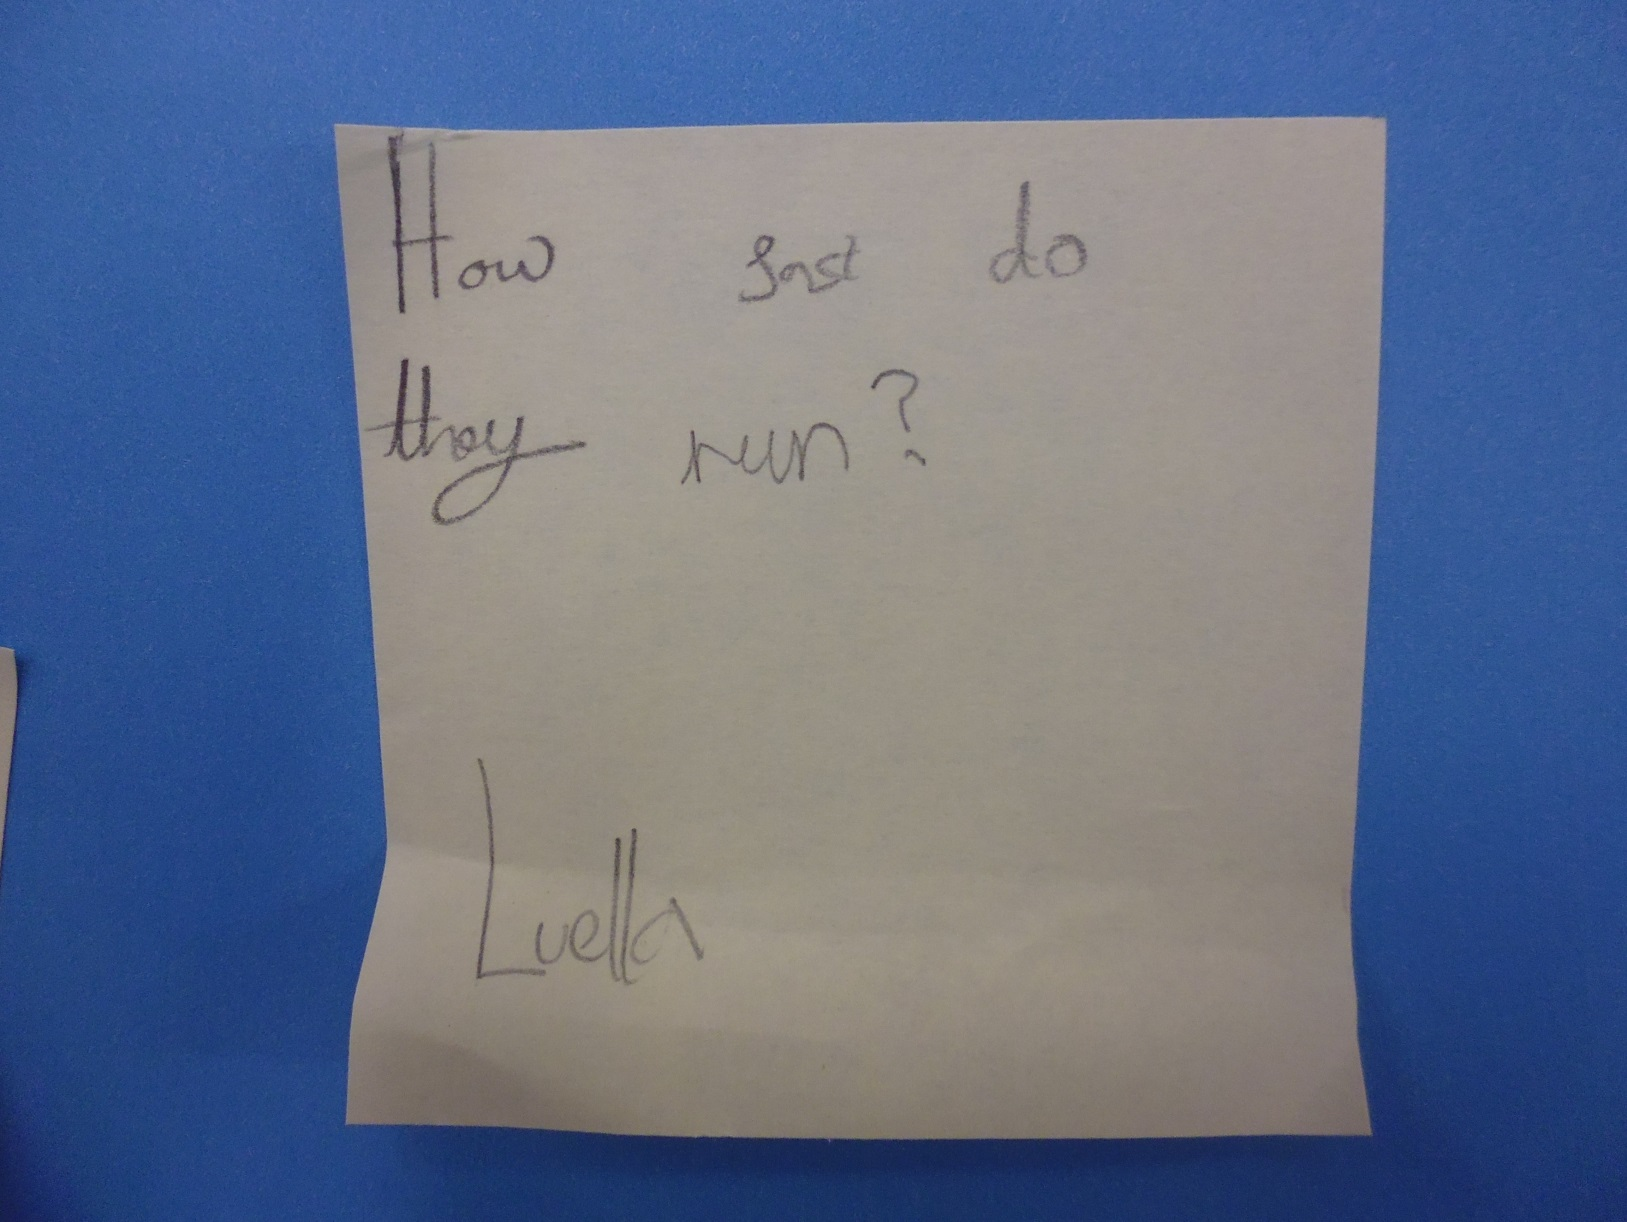 How fast do
they run?
Luella